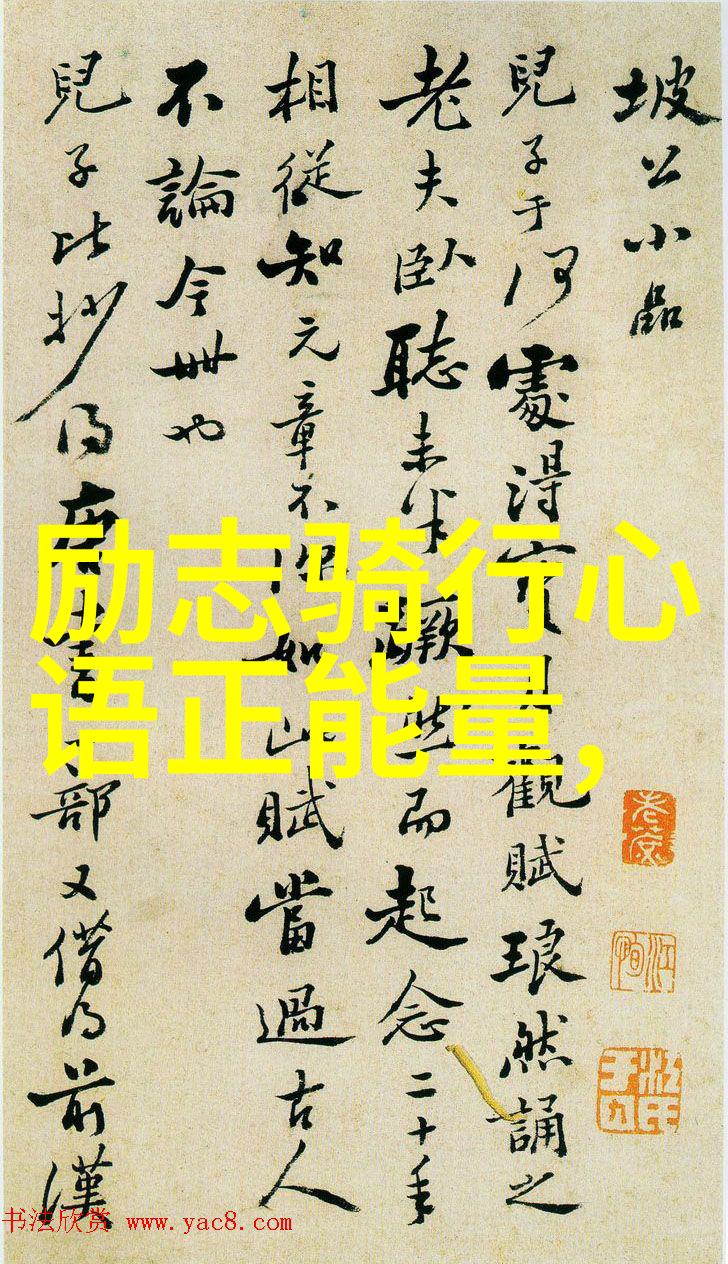 坡公小品
兒子于何處得寶月觀賦琅然誦之
老夫臥聽未半蹶然而起念二十年
相從知元章不如此賦當過古人
不論今世也
兒子比抄得唐書一部又借得前漢
励志骑行心
语正能量,
书法欣赏 www.yac8.com